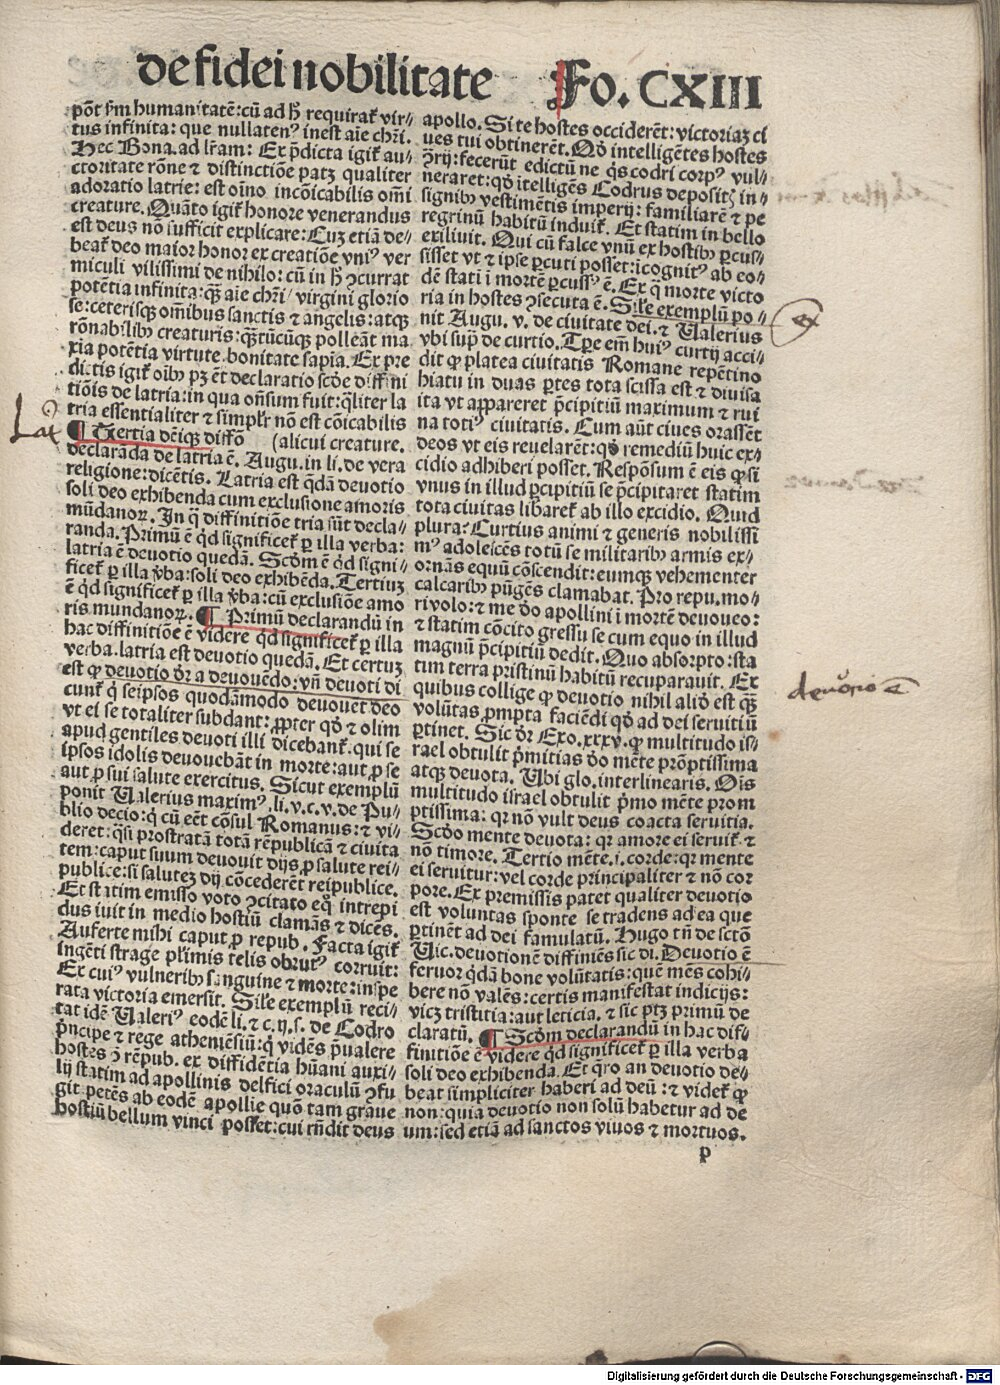 de fidei nobilitate Fo. CXIII
põt ẜm humanitatẽ: cũ ad ħ requirat᷑ vir⸗
tus infinita: que nullatenꝰ inest aĩe chr̃i.
Hec Bona. ad lr̃am: Ex p̃dicta igit᷑ au⸗
ctoritate rõne ⁊ distinctiõe patꝫ qualiter
adoratio latrie: est oĩno incõicabilis oĩm̃i
creature. Quãto igit᷑ honore venerandus
est deus nõ sufficit explicare: Cuꝫ etiã de⸗
beat᷑ deo maior honor ex creatiõe vniꝰ ver
miculi vilissimi de nihilo: cũ in ħ ↄcurrat
potẽtia infinita: qꝫ̃ aĩe chr̃i/ virgini glorio
se: ceterisqꝫ om̃ibus sanctis ⁊ angelis: atqꝫ
rõnabilibꝰ creaturis: qꝫ̃tũcũqꝫ polleãt ma
xia potẽtia virtute bonitate sapĩa. Ex pre
dictis igit᷑ oĩbꝰ pꝫ ẽt declaratio scd̃e diffini
tiõis de latria: in qua oñsum fuit: qͣliter la
tria essentialiter ⁊ simpl̃r nõ est cõicabilis
Lat
¶ Tertia dẽiqꝫ diffõ (alicui creature.
declarãda de latria ẽ. Augu. in li. de vera
religione: dicẽtis. Latria est qͦdã deuotio
soli deo exhibenda cum exclusione amoris
mũdanoꝝ. In q̃ diffinitiõe tria sũt decla⸗
randa. Primũ ẽ qͥd significet᷑ ꝑ illa verba:
latria ẽ deuotio quedã. Scd̃m ẽ qͥd signi⸗
ficet᷑ ꝑ illa v̾ba: soli deo exhibẽda. Tertiuꝫ
ẽ qͥd significet᷑ ꝑ illa v̾ba: cũ exclusiõe amo
ris mundanoꝝ. ¶ Primũ declarandũ in
hac diffinitiõe ẽ videre qͥd significet᷑ ꝑ illa
verba. latria est deuotio quedã. Et certuꝫ
est ꝙ deuotio dr̃ a deuouẽdo: vñ deuoti di
cunt᷑ q̇ seipsos quodãmodo deuouẽt deo
vt ei se totaliter subdant: ꝓpter qd̾ ⁊ olim
apud gentiles deuoti illi dicebant᷑. qui se
ipsos idolis deuouebãt in morte: aut ꝓ se
aut ꝓ sui salute exercitus. Sicut exemplũ
ponit Valerius maximꝰ. li. v. c. v. de Pu⸗
blio decio: q̇ cũ eẽt cõsul Romanus: ⁊ vi⸗
deret: qͣsi prostratã totã rẽpublicã ⁊ ciuita
tem: caput suum deuouit dijs ꝓ salute rei⸗
publice: si salutẽ dij cõcederẽt reipublice.
Et statim emisso voto ↄcitato eq̊ intrepi
dus iuit in medio hostiũ clamãs ⁊ dicẽs.
Auferte mihi caput ꝓ repub. Facta igit᷑
ingẽti strage pl̃imis telis obrutꝰ corruit:
Ex cuiꝰ vulneribꝰ sanguine ⁊ morte: inspe
rata victoria emersit. Sil̃e exemplũ reci⸗
tat idẽ Valeriꝰ eodẽ li. ⁊ c. ij. s. de Codro
p̃ncipe ⁊ rege atheniẽsiũ: q̇ vidẽs p̃ualere
hostes ↄ̃ rẽpub. ex diffidẽtia hũani auxi⸗
lij statim ad apollinis delfici oraculũ ↄfu
git petẽs ab eodẽ apollie quõ tam graue
hostiũ bellum vinci posset: cui rñdit deus
apollo. Si te hostes occiderẽt: victoriaꝫ ci
ues tui obtinerẽt. Qd̾ intelligẽtes hostes
ↄ̃rij: fecerũt edictũ ne q̇s codri corpꝰ vul⸗
neraret: qd̾ itelligẽs Codrus depositꝭ in⸗
signibꝰ vestimẽtis imperij: familiarẽ ⁊ pe
regrinũ habitũ induit. Et statim in bello
exiliuit. Qui cũ falce vnũ ex hostibꝰ ꝑcus⸗
sisset vt ⁊ ipse ꝑcuti posset: icognitꝰ ab eo⸗
dẽ stati ĩ mortẽ ꝑcussꝰ ẽ. Ex q̃ morte victo
ria in hostes ↄsecuta ẽ. Sil̃e exemplũ po⸗
ex
nit Augu. v. de ciuitate dei. ⁊ Valerius
vbi supͣ de curtio. Tp̃e em̃ huiꝰ curtij acci⸗
dit ꝙ platea ciuitatis Romane repẽtino
hiatu in duas ꝑtes tota scissa est ⁊ diuisa
ita vt appareret p̃cipitiũ maximum ⁊ rui
na totiꝰ ciuitatis. Cum aũt ciues orassẽt
deos vt eis reuelarẽt: qd̾ remediũ huic ex⸗
cidio adhiberi posset. Respõsum ẽ eis ꝙ si
vnus in illud p̃cipitiũ se p̃cipitaret statim
tota ciuitas libaret᷑ ab illo excidio. Quid
plura? Curtius animi ⁊ generis nobilissi
mꝰ adolescẽs totũ se militaribꝰ armis ex⸗
ornãs equũ cõscendit: eumqꝫ vehementer
calcaribꝰ pũgẽs clamabat. Pro repu. mo⸗
ri volo: ⁊ me do apollini ĩ mortẽ deuoueo:
⁊ statim cõcito gressu se cum equo in illud
magnũ p̃cipitiũ dedit. Quo absorpto: sta
tim terra pristinũ habitũ recuparauit. Ex
deuotio ẽ
quibus collige ꝙ deuotio nihil aliđ est qꝫ̃
volũtas ꝓmpta faciẽdi qd̾ ad dei seruitiũ
ꝑtinet. Sic dr̃ Exo. xxxv. ꝙ multitudo is⸗
rael obtulit p̃mitias dño mẽte prõptissima
atqꝫ deuota. Ubi glo. interlinearis. Oĩs
multitudo israel obtulit p̃mo mẽte prom
ptissima: qꝛ nõ vult deus coacta seruitia.
Scd̃o mente deuota: qꝛ amore ei seruit᷑ ⁊
nõ timore. Tertio mẽte. i. corde: qꝛ mente
ei seruitur: vel corde principaliter ⁊ nõ cor
pore. Ex premissis patet qualiter deuotio
est voluntas sponte se tradens ad ea que
ꝑtinẽt ad dei famulatũ. Hugo tñ de scto
Vic. deuotionẽ diffiniẽs sic di. Deuotio ẽ
feruor qͥdã bone volũtatis: quẽ mẽs cohi⸗
bere nõ valẽs: certis manifestat indicijs:
vicꝫ tristitia: aut leticia. ⁊ sic ptꝫ primũ de
claratũ. ¶ Scd̃m declarandũ in hac dif⸗
finitiõe ẽ videre qͥd significet᷑ ꝑ illa verba
soli deo exhibenda. Et qͥro an deuotio de⸗
beat simpliciter haberi ad deũ: ⁊ videt᷑ ꝙ
non: quia deuotio non solũ habetur ad de
um: sed etiã ad sanctos viuos ⁊ mortuos.
p
Digitalisierung gefördert durch die Deutsche Forschungsgemeinschaft - DFG